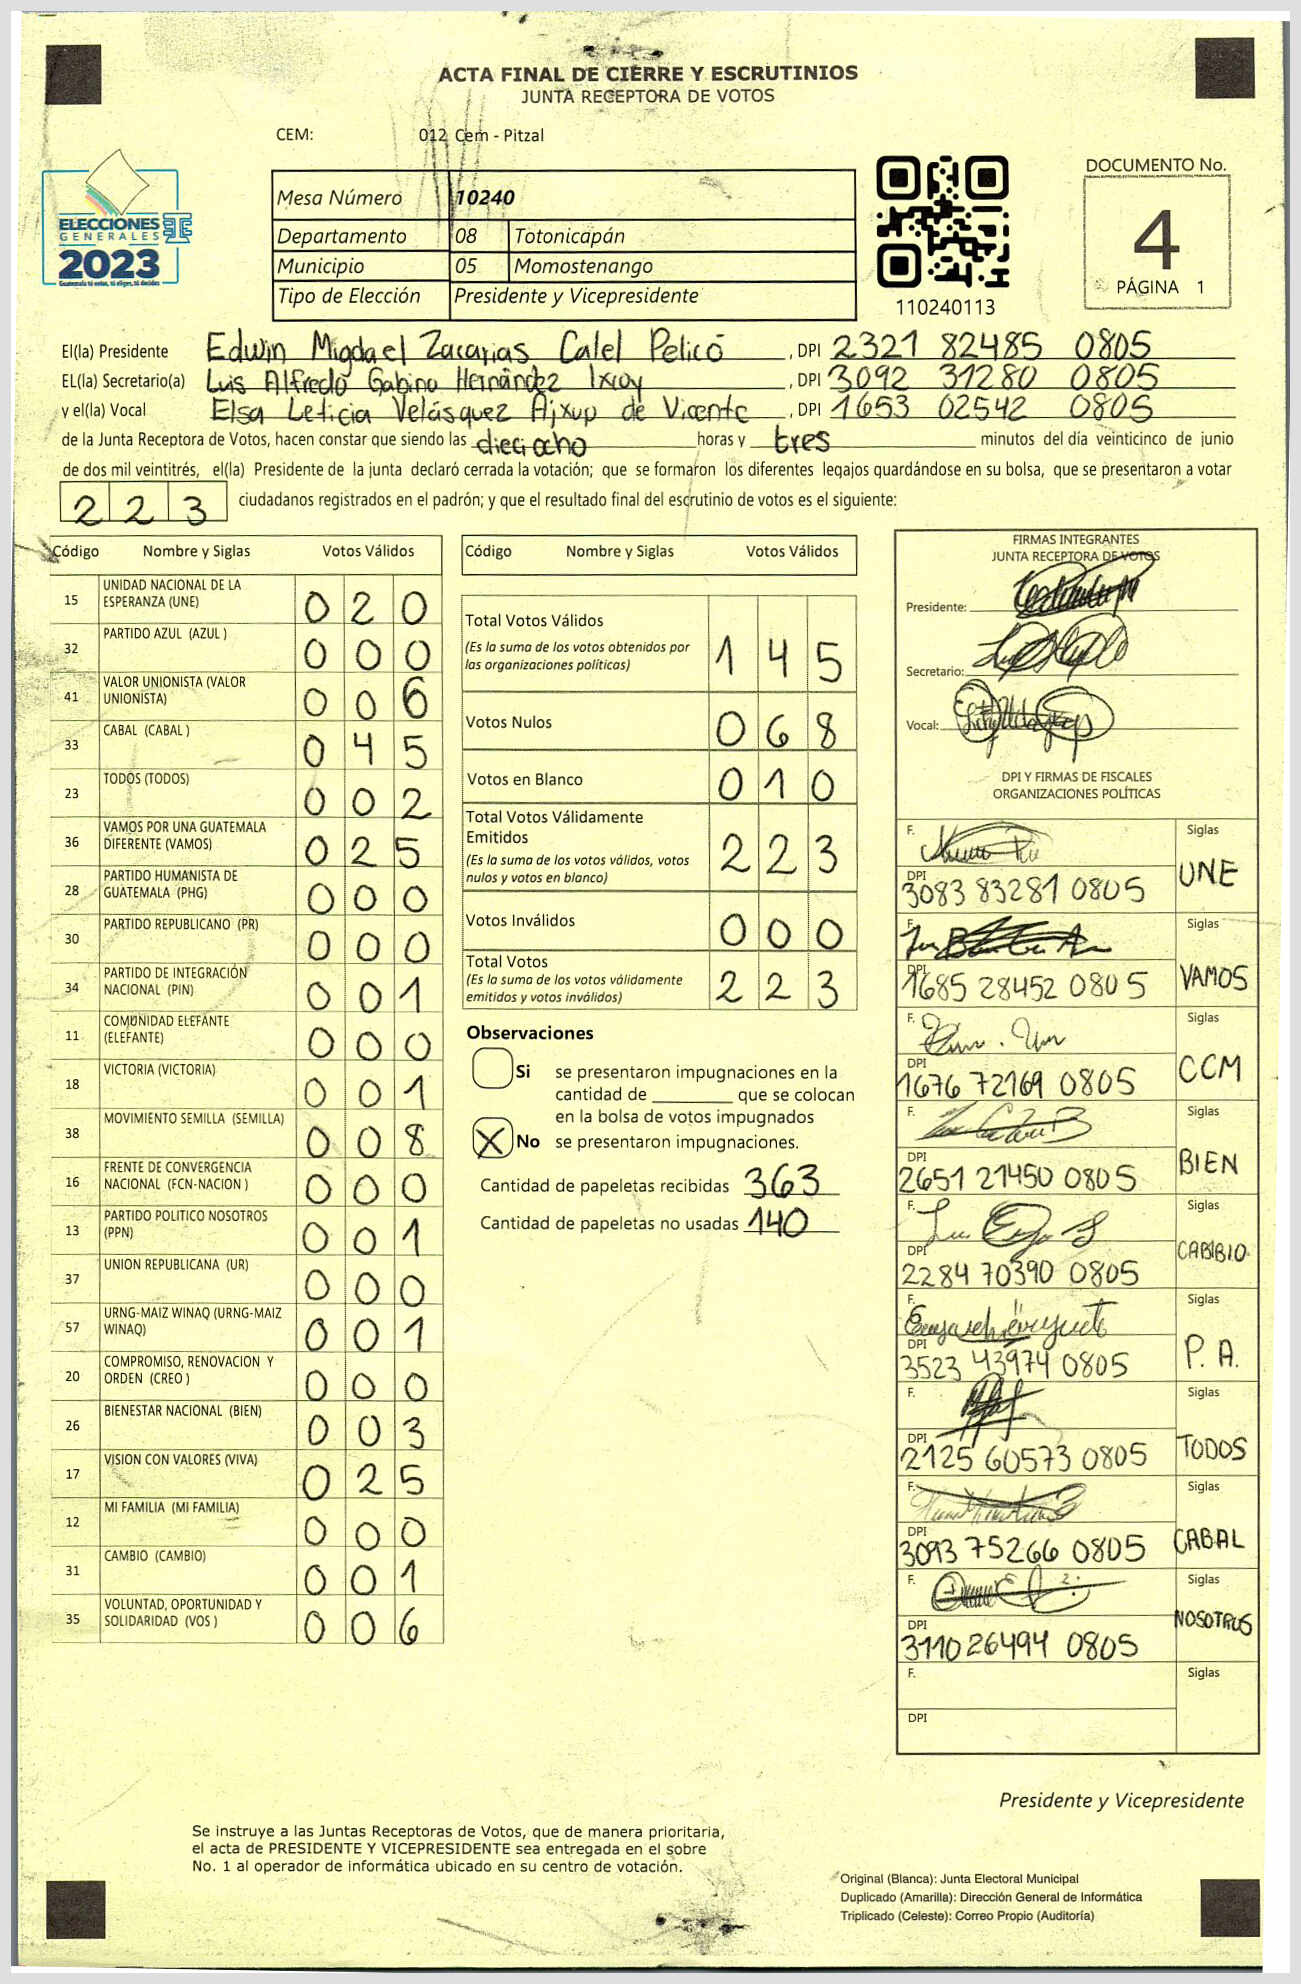 ACTA FINAL DE CIERRE Y ESCRUTINIOS
JUNTA RECEPTORA DE VOTOS
CEM: 012 Cem - Pitzal
ELECCIONES
GENERALES
2023
Guatemala tú votas, tú eliges, tú decides
Mesa Número 10240
Departamento 08 Totonicapán
Municipio 05 Momostenango
Tipo de Elección Presidente y Vicepresidente
110240113
DOCUMENTO No.
4
PÁGINA 1
El(la) Presidente Edwin Migdael Zacarias Calel Pelicó, DPI 2321 82485 0805
EL(la) Secretario(a) Luis Alfredo Gabino Hernández Ixcoy, DPI 3092 31280 0805
y el(la) Vocal Elsa Leticia Velásquez Ajxup de Vicente, DPI 1653 02542 0805
de la Junta Receptora de Votos, hacen constar que siendo las dieciocho horas y tres minutos del día veinticinco de junio
de dos mil veintitrés, el(la) Presidente de la junta declaró cerrada la votación; que se formaron los diferentes legajos guardándose en su bolsa, que se presentaron a votar
223 ciudadanos registrados en el padrón; y que el resultado final del escrutinio de votos es el siguiente:
Código Nombre y Siglas Votos Válidos
15 UNIDAD NACIONAL DE LA ESPERANZA (UNE) 020
32 PARTIDO AZUL (AZUL ) 000
41 VALOR UNIONISTA (VALOR UNIONISTA) 006
33 CABAL (CABAL ) 045
23 TODOS (TODOS) 002
36 VAMOS POR UNA GUATEMALA DIFERENTE (VAMOS) 025
28 PARTIDO HUMANISTA DE GUATEMALA (PHG) 000
30 PARTIDO REPUBLICANO (PR) 000
34 PARTIDO DE INTEGRACIÓN NACIONAL (PIN) 001
11 COMUNIDAD ELEFANTE (ELEFANTE) 000
18 VICTORIA (VICTORIA) 001
38 MOVIMIENTO SEMILLA (SEMILLA) 008
16 FRENTE DE CONVERGENCIA NACIONAL (FCN-NACION ) 000
13 PARTIDO POLITICO NOSOTROS (PPN) 001
37 UNION REPUBLICANA (UR) 000
57 URNG-MAIZ WINAQ (URNG-MAIZ WINAQ) 001
20 COMPROMISO, RENOVACION Y ORDEN (CREO ) 000
26 BIENESTAR NACIONAL (BIEN) 003
17 VISION CON VALORES (VIVA) 025
12 MI FAMILIA (MI FAMILIA) 000
31 CAMBIO (CAMBIO) 001
35 VOLUNTAD, OPORTUNIDAD Y SOLIDARIDAD (VOS ) 006
Código Nombre y Siglas Votos Válidos
Total Votos Válidos 145
(Es la suma de los votos obtenidos por
las organizaciones políticas)
Votos Nulos 068
Votos en Blanco 010
Total Votos Válidamente
Emitidos 223
(Es la suma de los votos válidos, votos
nulos y votos en blanco)
Votos Inválidos 000
Total Votos 223
(Es la suma de los votos válidamente
emitidos y votos inválidos)
Observaciones
Si se presentaron impugnaciones en la
cantidad de ________ que se colocan
en la bolsa de votos impugnados
X No se presentaron impugnaciones.
Cantidad de papeletas recibidas 363
Cantidad de papeletas no usadas 140
FIRMAS INTEGRANTES
JUNTA RECEPTORA DE VOTOS
Presidente:
Secretario:
Vocal:
DPI Y FIRMAS DE FISCALES
ORGANIZACIONES POLÍTICAS
F. Siglas
DPI 3083 83281 0805 UNE
F. Siglas
DPI 1685 28452 0805 VAMOS
F. Siglas
DPI 1676 72169 0805 CCM
F. Siglas
DPI 2651 21450 0805 BIEN
F. Siglas
DPI 2284 70390 0805
F. Siglas
DPI 3523 43974 0805 P.A.
F. Siglas
DPI 2125 60573 0805 TODOS
F. Siglas
DPI 3093 75266 0805 CABAL
F. Siglas
DPI 3110 26494 0805 NOSOTROS
F. Siglas
DPI
Presidente y Vicepresidente
Se instruye a las Juntas Receptoras de Votos, que de manera prioritaria,
el acta de PRESIDENTE Y VICEPRESIDENTE sea entregada en el sobre
No. 1 al operador de informática ubicado en su centro de votación.
Original (Blanca): Junta Electoral Municipal
Duplicado (Amarilla): Dirección General de Informática
Triplicado (Celeste): Correo Propio (Auditoría)